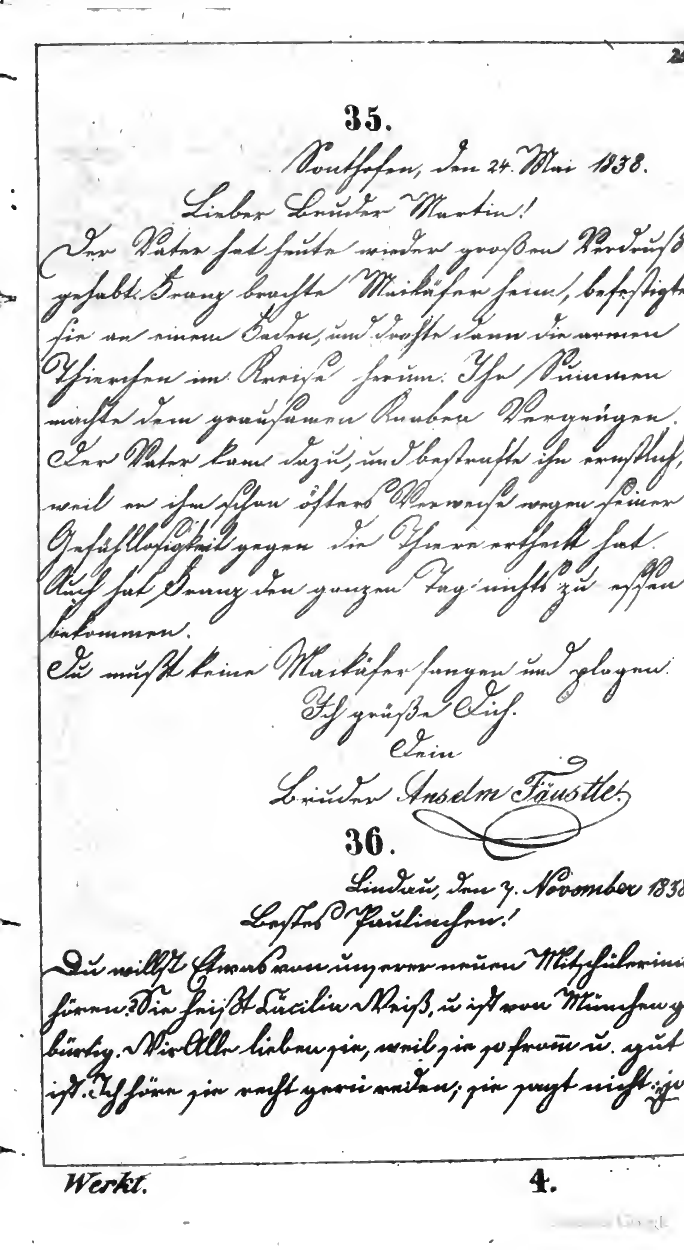 35.
Sonthofen, den 24. Mai 1838.
Lieber Bruder Martin!
Der Vater hat heute wieder großen Verdruß
gehabt. Franz brachte Maikäfer heim, befestigte
sie an einem Faden, und drehte dann die armen
Thierchen im Kreise herum. Ihr Summen
machte dem grausamen Knaben Vergnügen.
Der Vater kam dazu, und bestrafte ihn ernstlich,
weil er ihm schon öfters Verweise wegen seiner
Gefühllosigkeit gegen die Thiere ertheilt hat.
Auch hat Franz den ganzen Tag nichts zu essen
bekommen.
Du mußt keine Maikäfer fangen und plagen.
Ich grüße Dich.
Dein
Bruder Anselm Fäustle.
36.
Lindau, den 7. November 1838
Bestes Paulinchen!
Du willst Etwas von unserer neuen Mitschülerin
hören. Sie heißt Cäcilia Weiß, u. ist von München g
bürtig. Wir Alle lieben sie, weil sie so from̅ u. gut
ist. Ich höre sie recht gern reden; sie sagt nicht: jo
Werkt.
4.